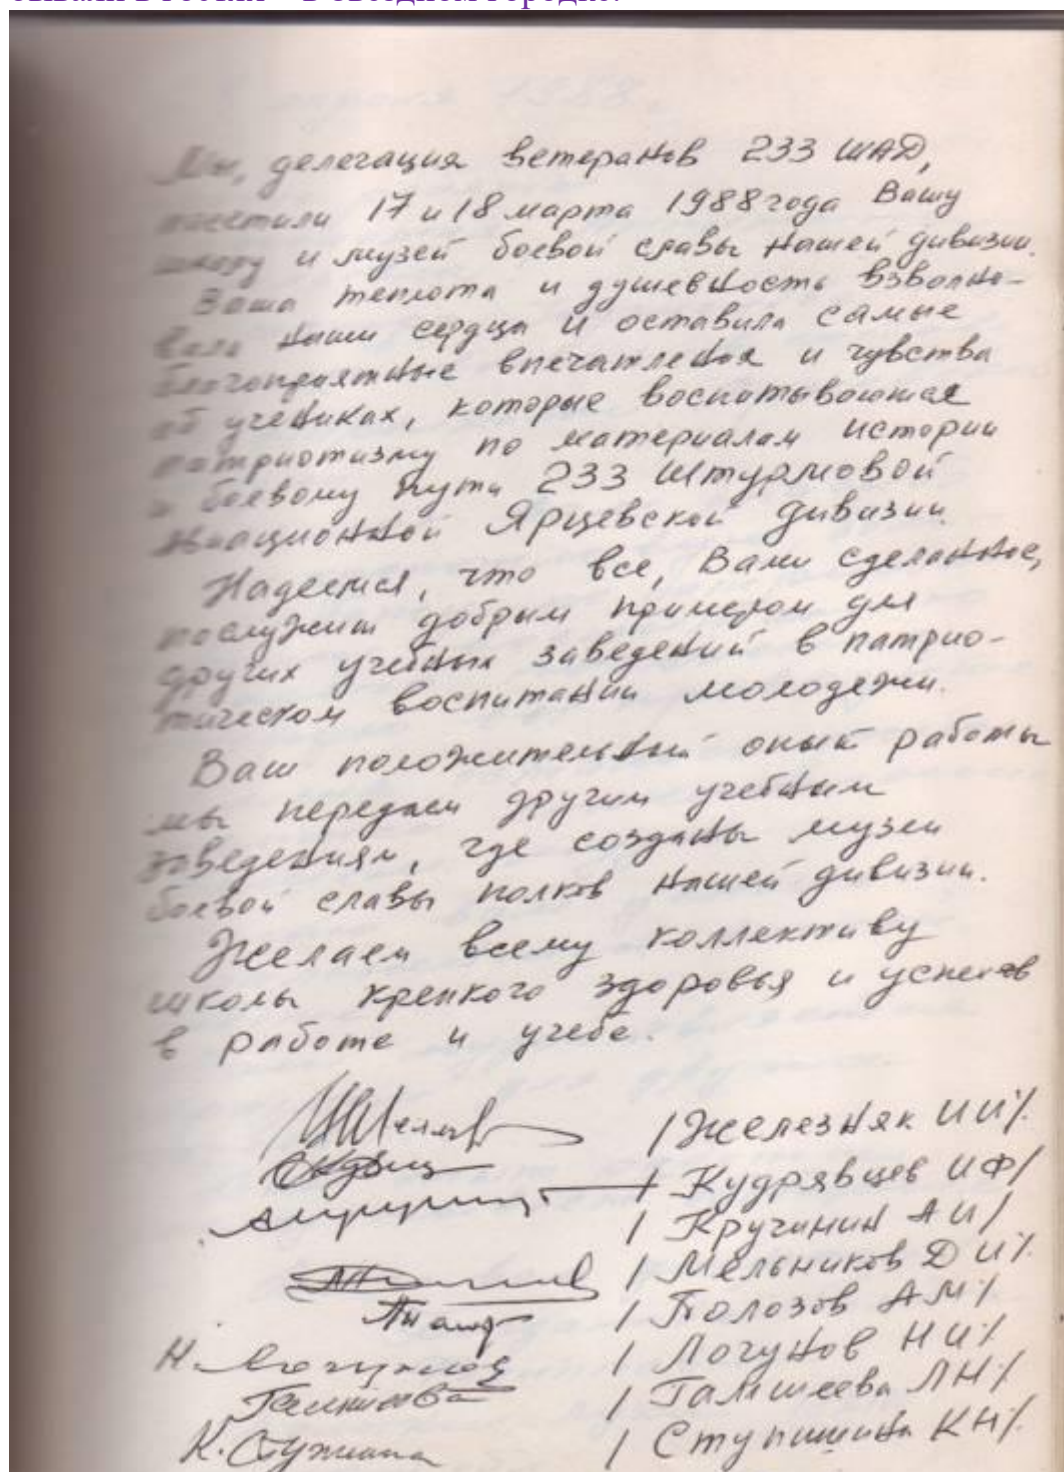 Мы, делегация ветеранов 233 ШАД,
посетили 17 и 18 марта 1988 года Вашу
школу и музей боевой славы нашей дивизии.
Ваша теплота и душевность взволно-
вала наши сердца и оставила самые
благоприятные впечатления и чувства
об учениках, которые воспитываются
патриотизму по материалам истории
и боевому пути 233 Штурмовой
авиационной Ярцевской дивизии.
Надеемся, что все, Вами сделанное,
послужит добрым примером для
других учебных заведений в патрио-
тическом воспитании молодежи.
Ваш положительный опыт работы
мы передаем другим учебным
заведениям, где созданы музеи
боевой славы полков нашей дивизии.
Желаем всему коллективу
школы крепкого здоровья и успехов
в работе и учебе.
/Железняк И И/.
/ Кудрявцев И Ф/
/ Кручинин А И/
/ Мельников Д И/.
/ Полозов А М/.
Н. Логунов / Логунов Н И/.
/ Л Н/.
К. / Ступишина К Н/.